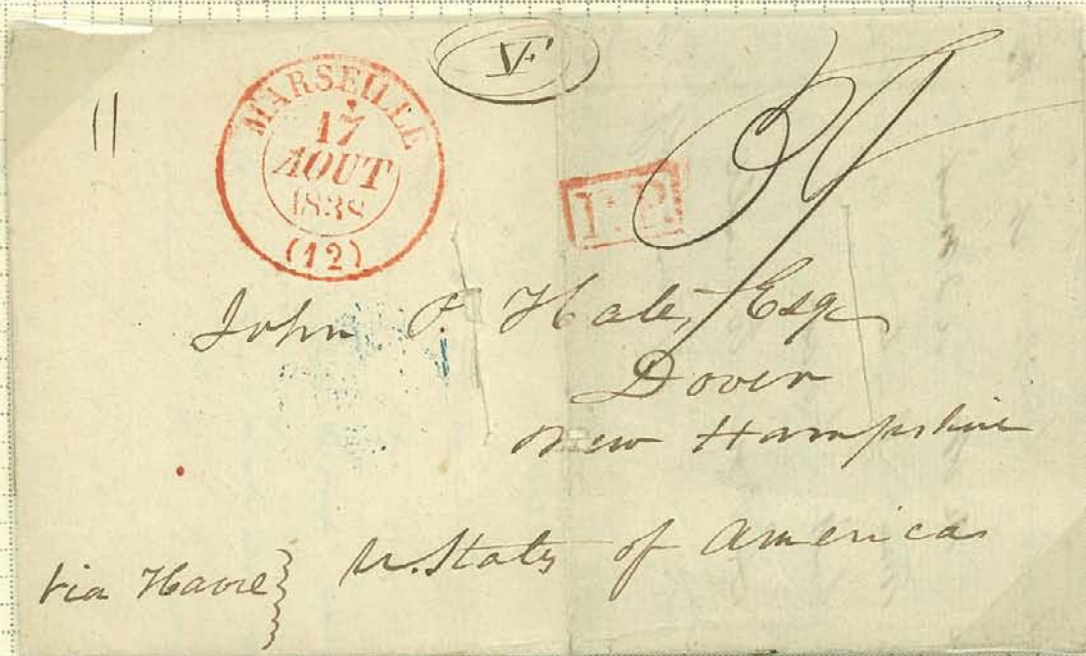 11
MARSEILLE
17
AOUT
1838
(12)
V
P.P.
John P. Hale, Esq
Dover
New Hampshire
U. States of America
via Havre